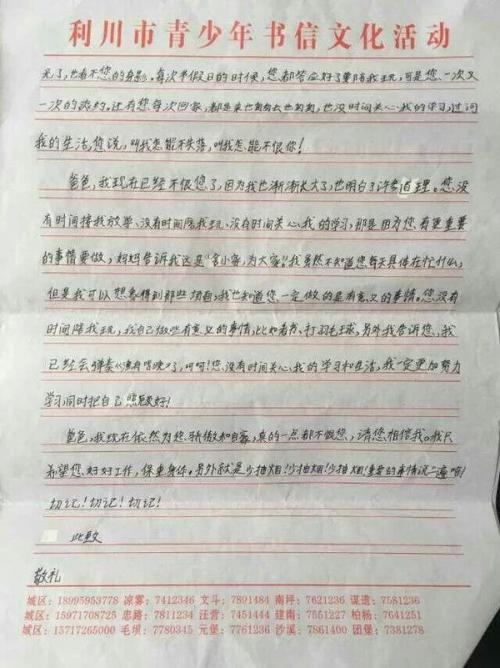 利川市青少年书信文化活动
光了,也看不见您的身影。每次半假日的时候,您都答应好了要陪我玩,可是您一次又
一次的毁约。还有您每次回家,都是来也匆匆去也匆匆,也没时间关心我的学习,过问
我的生活,您说,叫我怎能不失落,叫我怎能不恨你!
爸爸,我现在已经不恨您了,因为我也渐渐长大了,也明白了许多道理。您没
有时间接我放学、没有时间陪我玩、没有时间关心我的学习,那是因为您有更重要
的事情要做,妈妈告诉我这是“舍小家,为大家”!我虽然不知道您每天具体在忙什么,
但是我可以想象得到那些场面;我也知道您一定做的是有意义的事情。您没有
时间陪我玩,我自己做些有意义的事情,比如看书、打羽毛球,另外我告诉您,我
已经会弹奏《渔舟唱晚》了,呵呵!您没有时间关心我的学习和生活,我一定更加努力
学习同时把自己照顾好!
爸爸,我现在依然为您骄傲和自豪,真的一点都不恨您,请您相信我。我只
希望您好好工作,保重身体。另外就是少抽烟!少抽烟!少抽烟!重要的事情说三遍哟!
切记!切记!切记!
此致
敬礼
城区:18995953778 凉雾:7412346 文斗:7891484 南坪:7621236 谋道:7581236
城区:15971708725 忠路:7811234 汪营:7451444 建南:7551227 柏杨:7641251
城区:15717265000 毛坝:7780345 元堡:7761236 沙溪:7861400 团堡:7381278